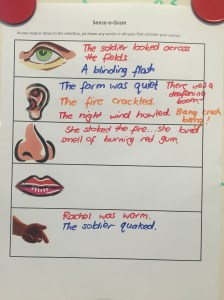 Sense-o-Gram
As you read or listen to the selection, jot down any words or phrases that activate your senses.
The soldier looked across
the fields
A blinding flash
The farm was quiet
There was a
deafening
boom
The fire crackled.
The night wind howled.
Bang crash
bang!
She stoked the fire...she loved
smell of burning red gum.
Rachel was warm.
The soldier quaked.